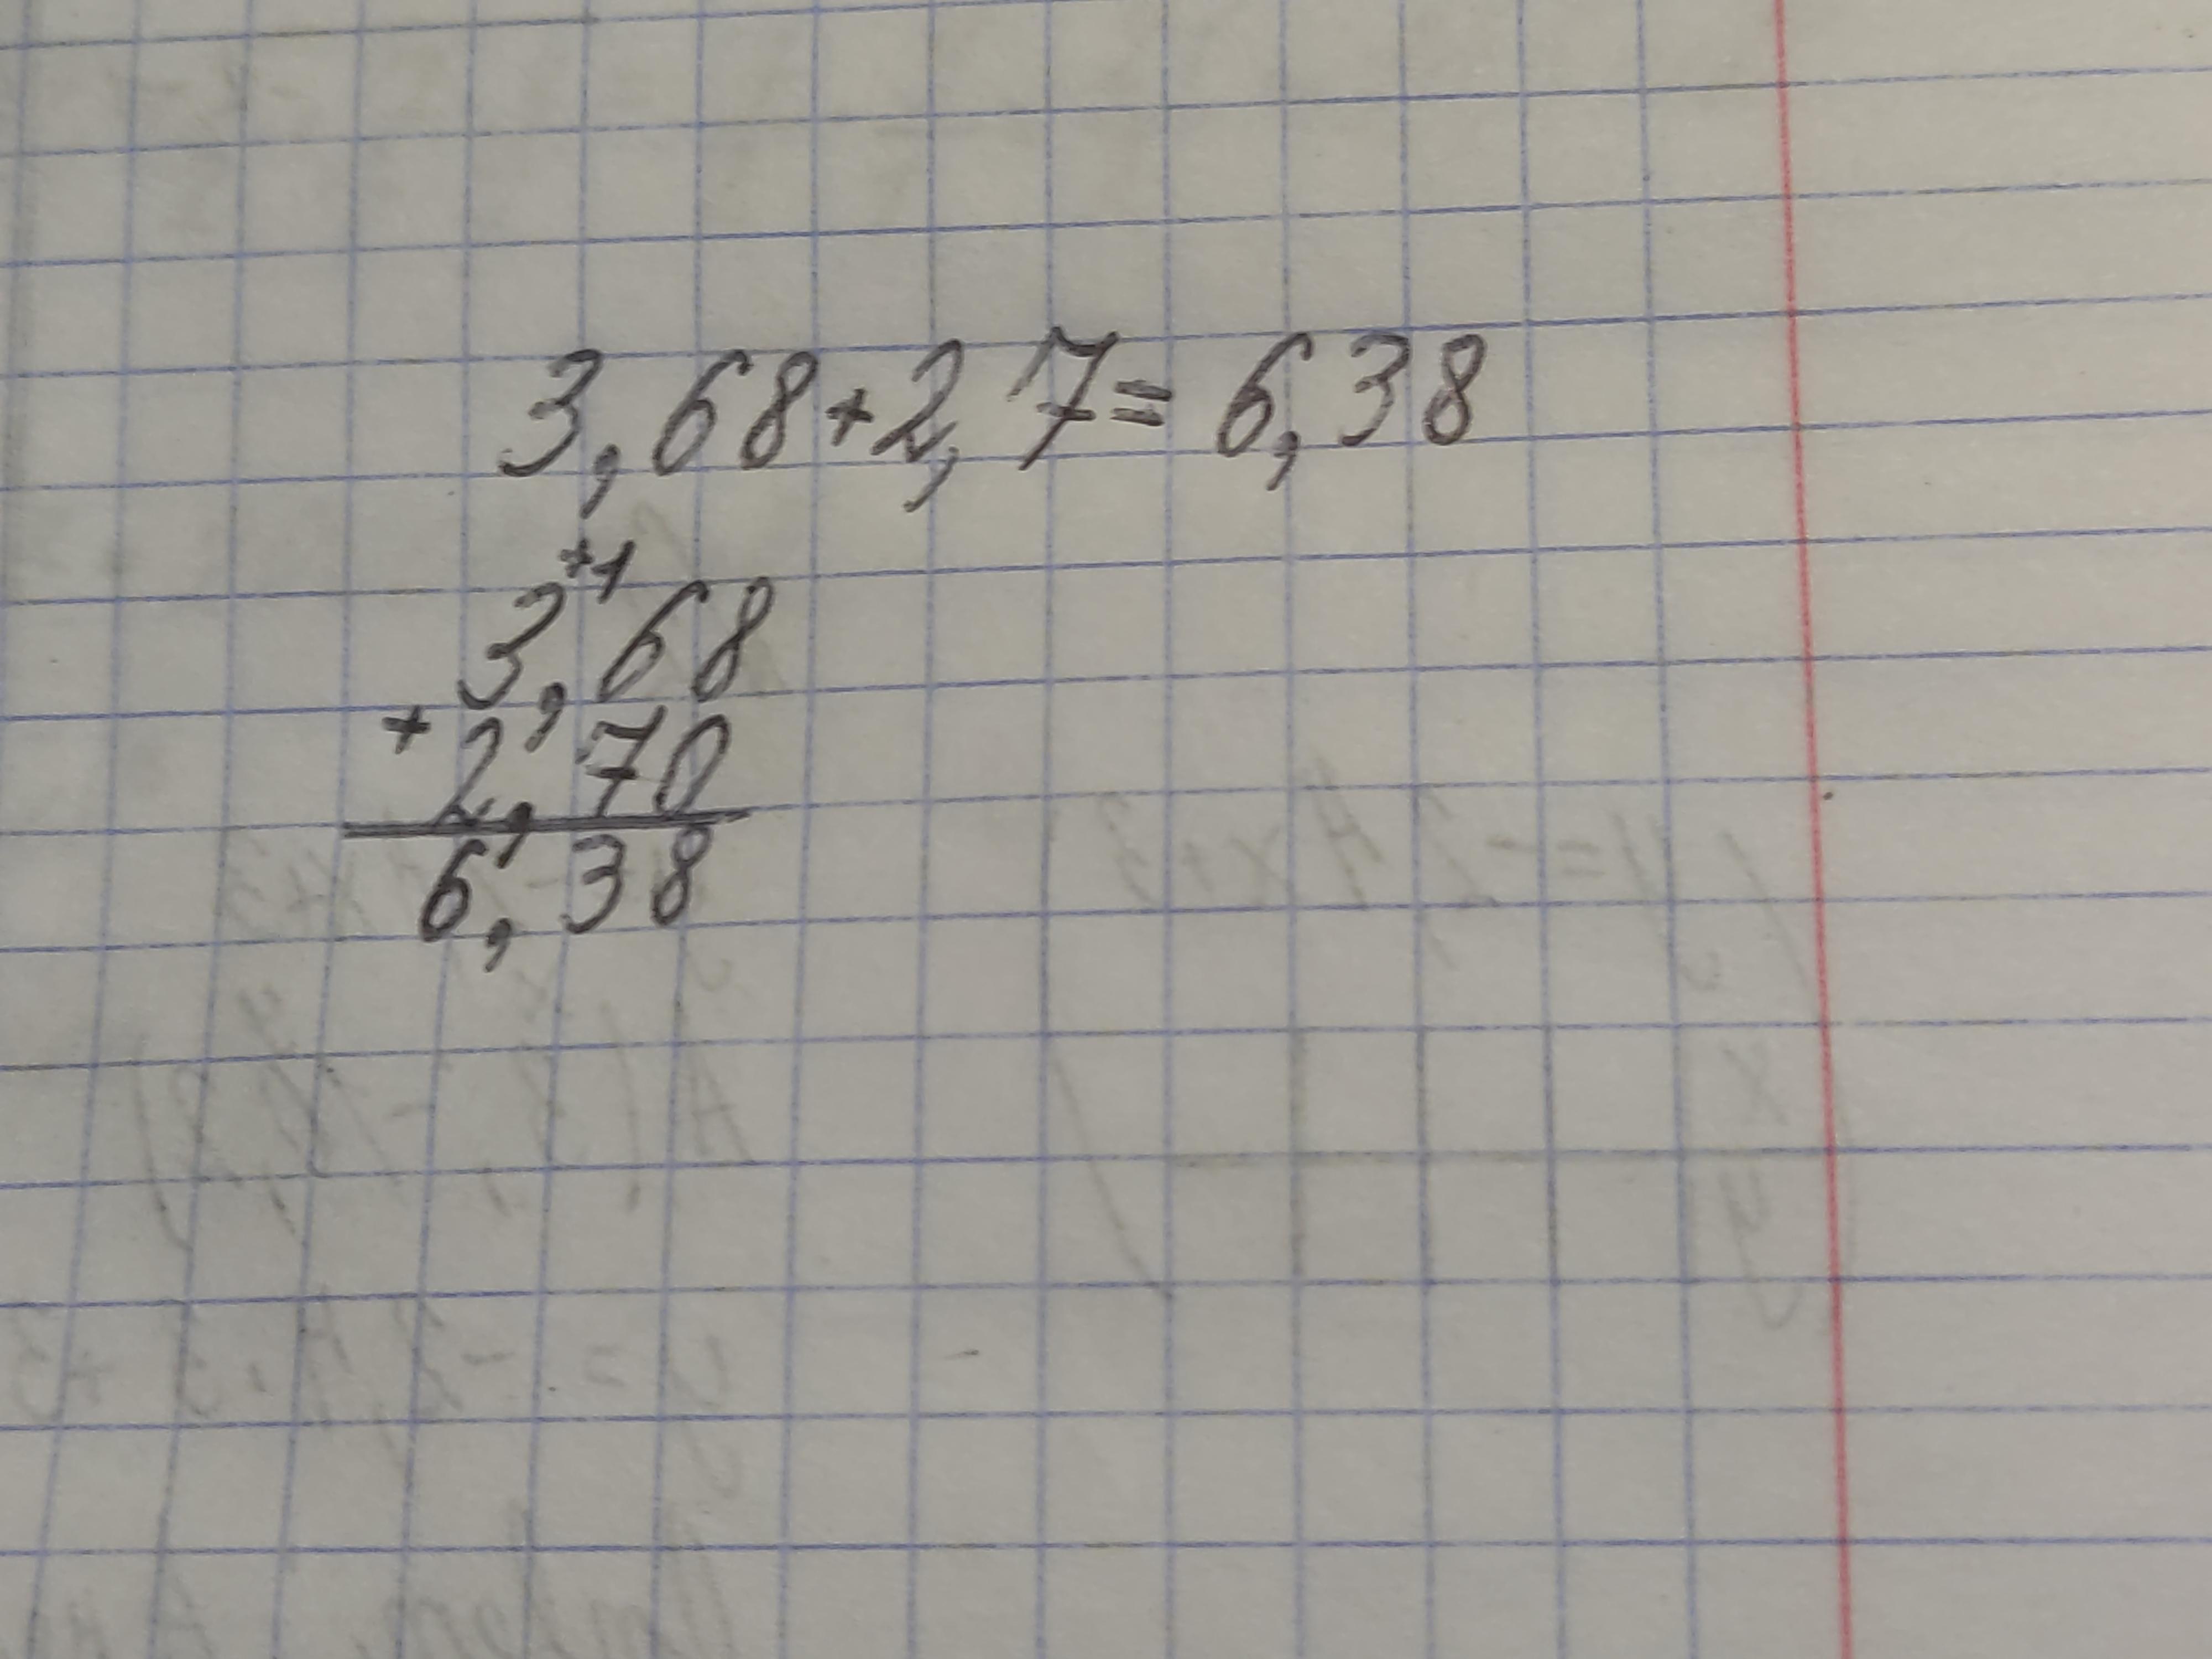 3,68+2,7=6,38
+1
3,68
+ 2,70
6,38